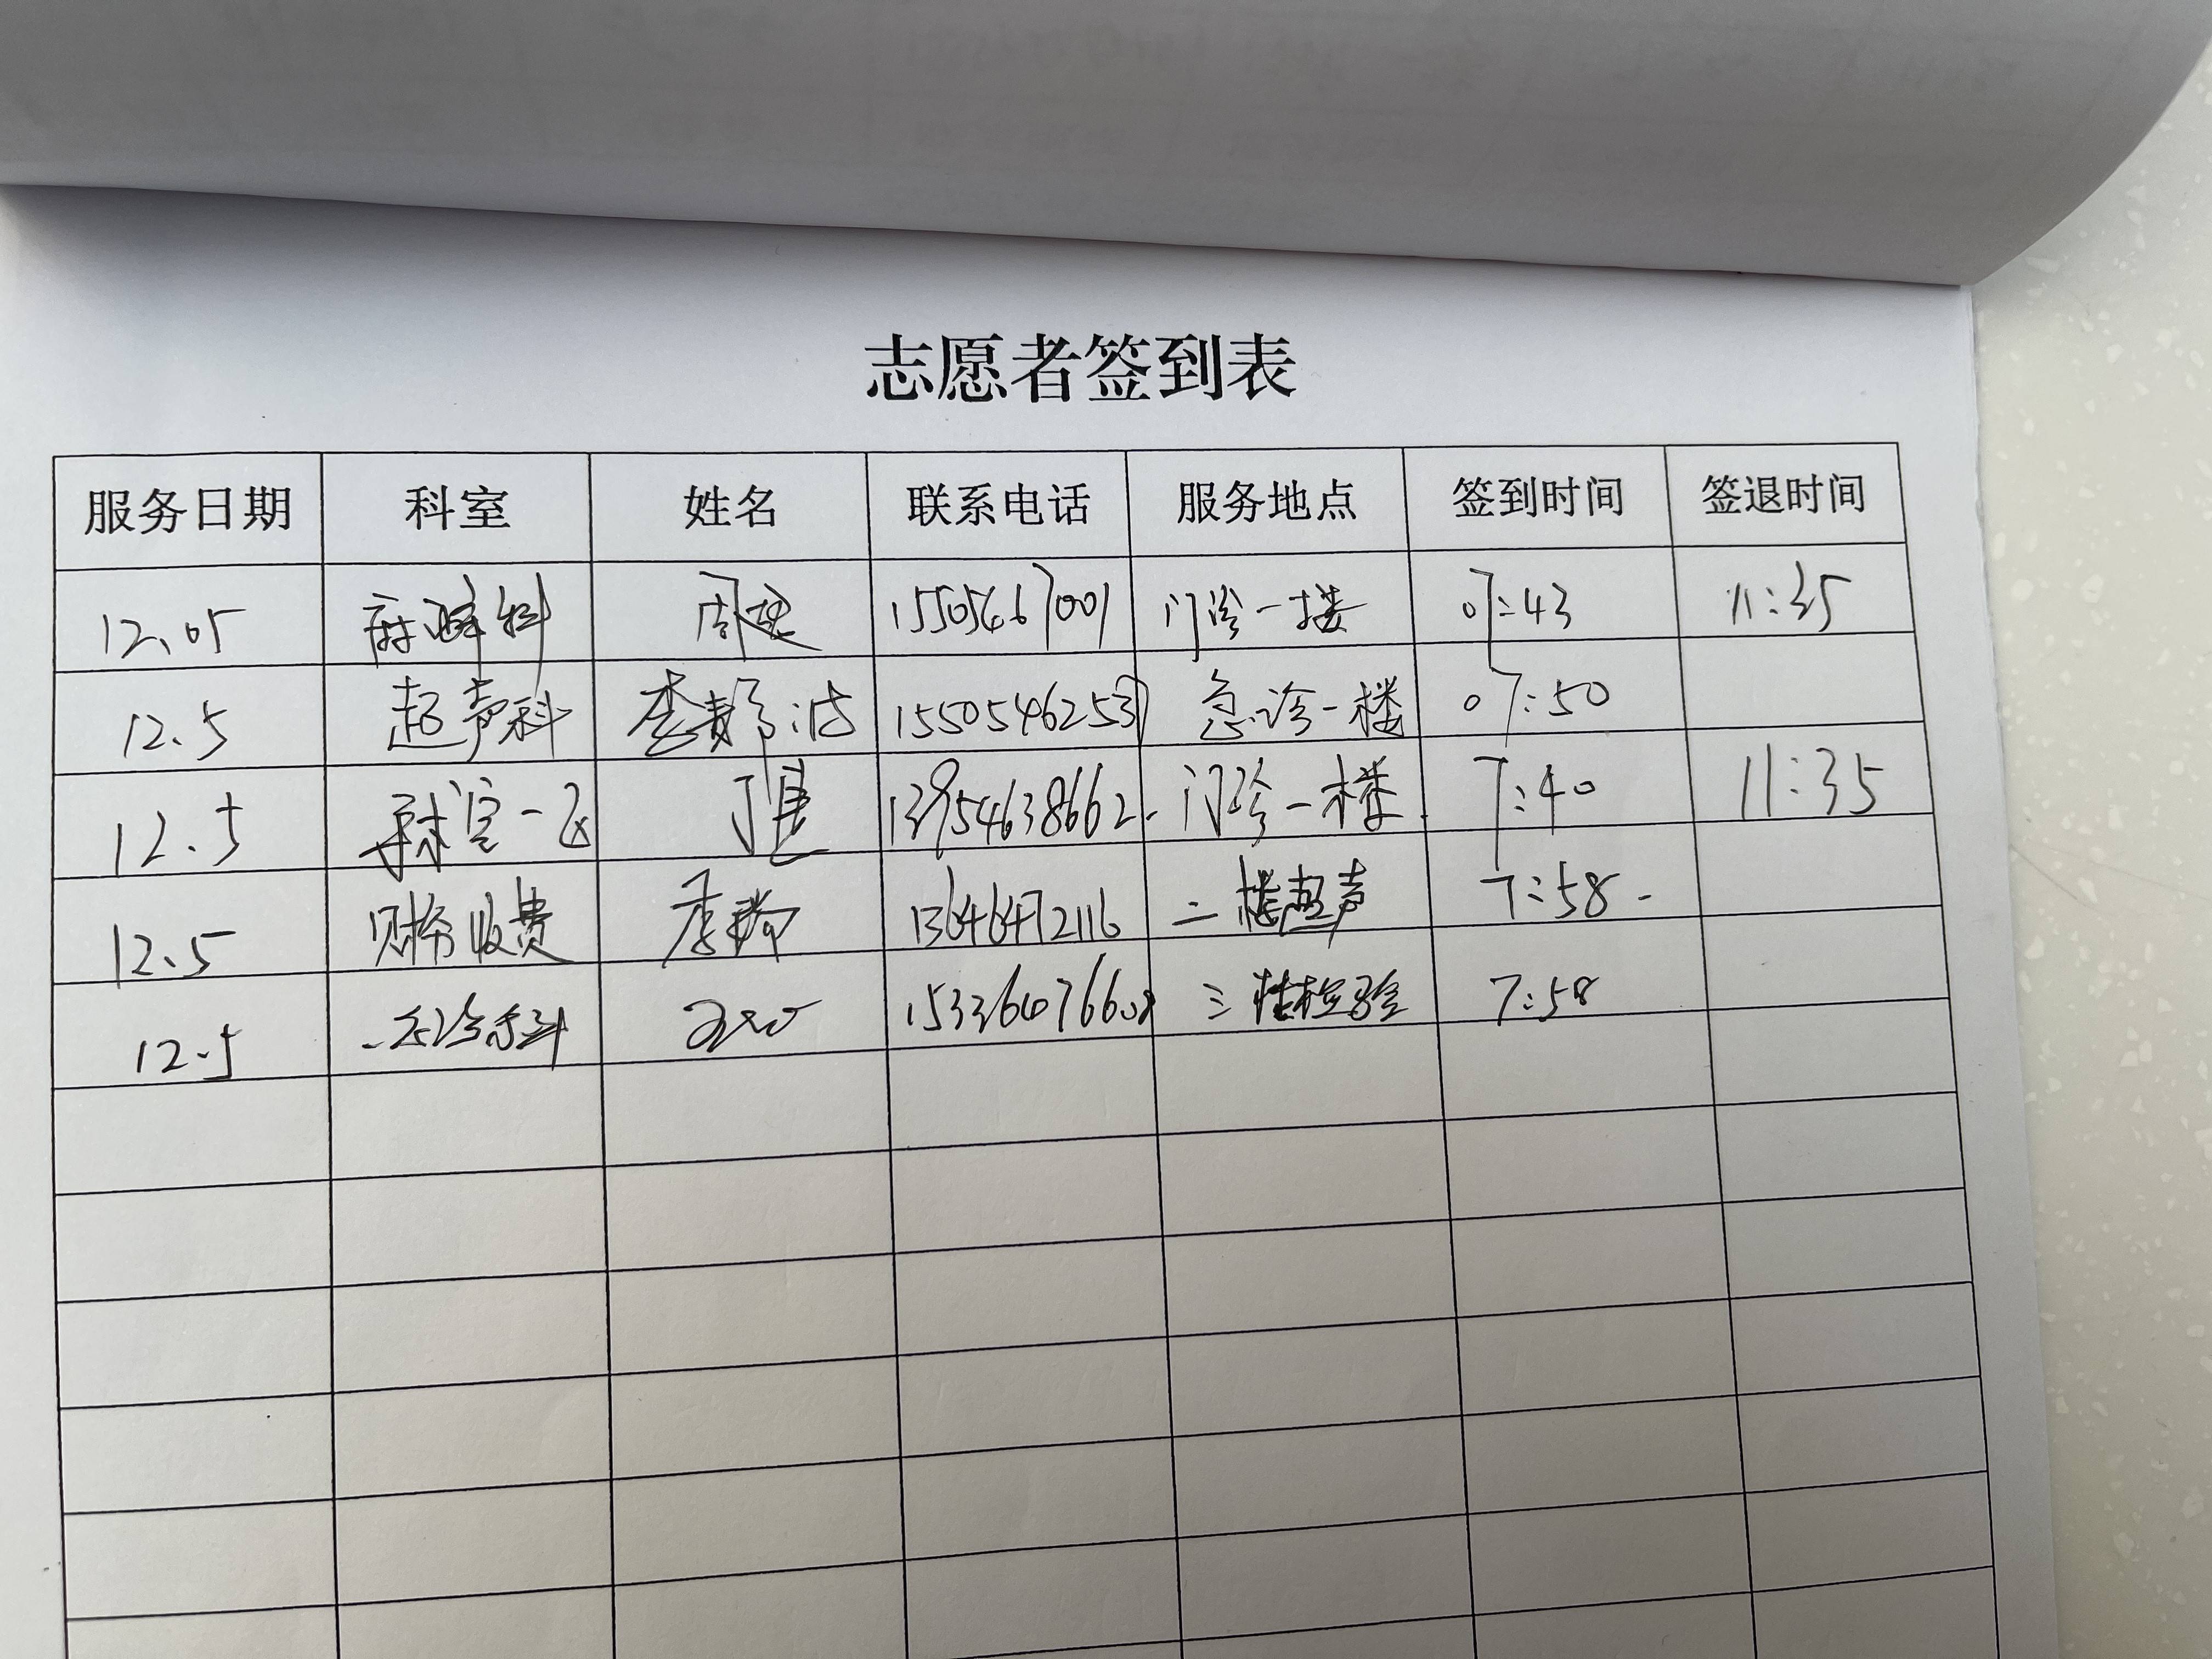 志愿者签到表
服务日期 科室 姓名 联系电话 服务地点 签到时间 签退时间
12.05 麻醉科 周 15505467001 门诊一楼 07:43 11:35
12.5 超声科 李静洁 15505462537 急诊一楼 07:50
12.5 一区 丁 13954638662 门诊一楼 7:40 11:35
12.5 财务收费 李 13646472116 二楼超声 7:58
12.5 急诊科 三楼检验 7:58